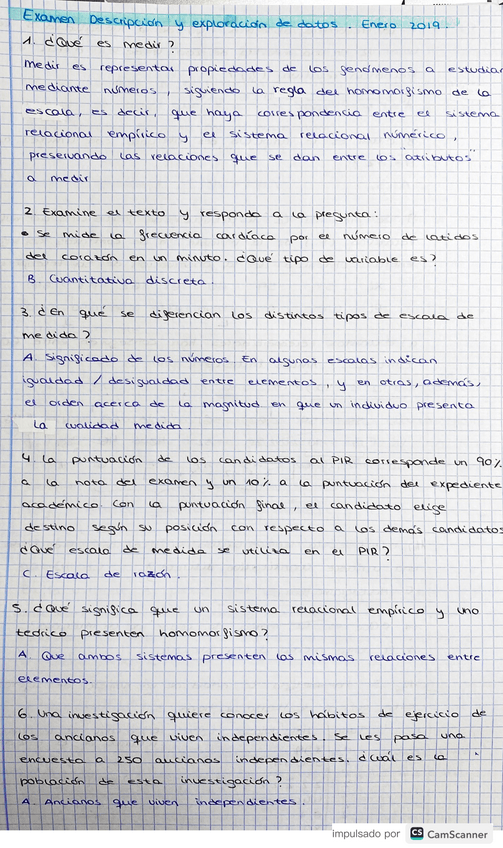 Examen Descripción y exploración de datos. Enero 2019.
1. ¿Qué es medir?
Medir es representar propiedades de los fenómenos a estudiar
mediante números, siguiendo la regla del homomorfismo de la
escala, es decir, que haya correspondencia entre el sistema
relacional empírico y el sistema relacional numérico,
preservando las relaciones que se dan entre los atributos
a medir
2 Examine el texto y responda a la pregunta:
• Se mide la frecuencia cardíaca por el número de latidos
del corazón en un minuto. ¿Qué tipo de variable es?
B. Cuantitativa discreta.
3. ¿En qué se diferencian los distintos tipos de escala de
medida?
A. Significado de los números. En algunas escalas indican
igualdad / desigualdad entre elementos, y en otras, además,
el orden acerca de la magnitud en que un individuo presenta
la cualidad medida.
4. La puntuación de los candidatos al PIR corresponde un 90%
a la nota del examen y un 10% a la puntuación del expediente
académico. Con la puntuación final, el candidato elige
destino según su posición con respecto a los demás candidatos
¿Qué escala de medida se utiliza en el PIR?
C. Escala de razón.
5. ¿Qué significa que un sistema relacional empírico y uno
teórico presenten homomorfismo?
A. Que ambos sistemas presenten las mismas relaciones entre
elementos.
6. Una investigación quiere conocer los hábitos de ejercicio de
los ancianos que viven independientes. Se les pasa una
encuesta a 250 ancianos independientes. ¿Cuál es la
población de esta investigación?
A. Ancianos que viven independientes.
impulsado por CS CamScanner